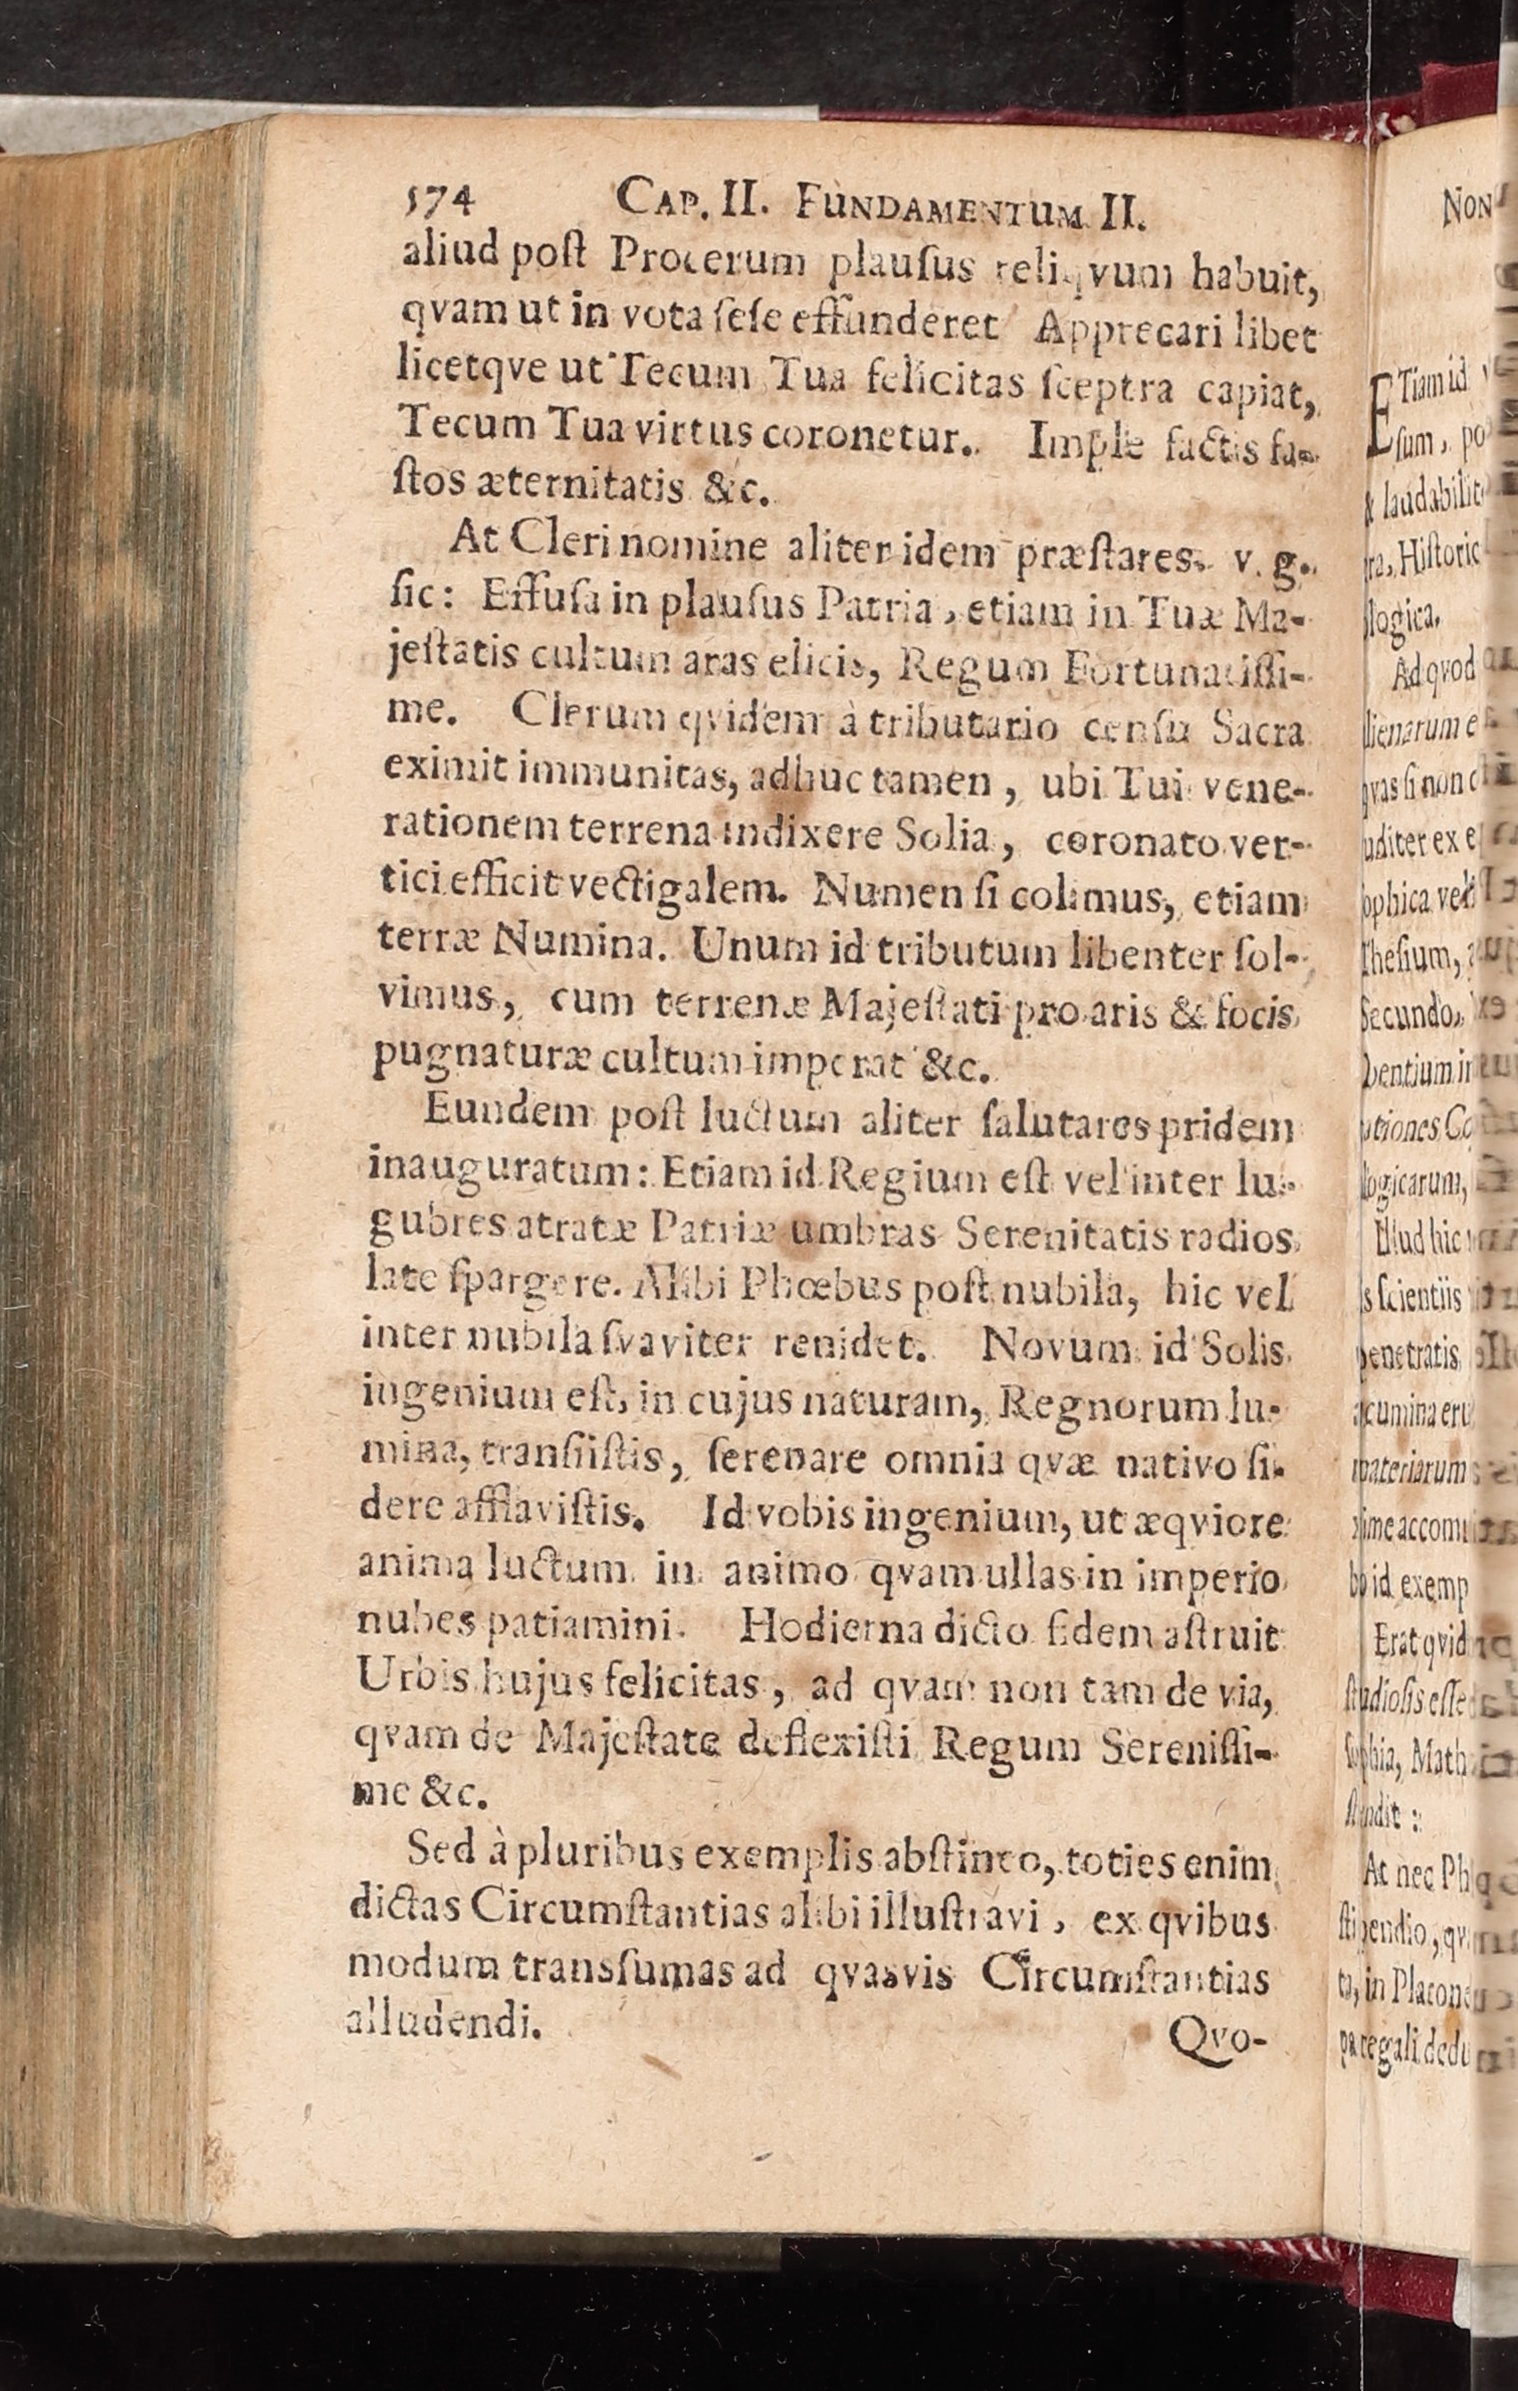 574 CAP. II. FUNDAMENTUM II.
aliud poſt Procerum plauſus reliqvum habuit,
qvam ut in vota ſeſe effunderet Apprecari libet
licetqve ut Tecum Tua felicitas ſceptra capiat,
Tecum Tua virtus coronetur. Imple factis fa-
ſtos æternitatis &c.
At Cleri nomine aliter idem præſtares. v. g.
ſic: Effuſa in plauſus Patria, etiam in Tuæ Ma-
jeſtatis cultum aras elicis, Regum Fortunatiſſi-
me. Clerum qvidem à tributario cenſu Sacra
eximit immunitas, adhuc tamen, ubi Tui vene-
rationem terrena indixere Solia, coronato ver-
tici efficit vectigalem. Numen ſi colimus, etiam
terræ Numina. Unum id tributum libenter ſol-
vimus, cum terrenæ Majeſtati pro aris & focis
pugnaturæ cultum imperat &c.
Eundem poſt luctum aliter ſalutares pridem
inauguratum: Etiam id Regium eſt vel inter lu-
gubres atratæ Patriæ umbras Serenitatis radios
late ſpargere. Alibi Phœbus poſt nubila, hic vel
inter nubila ſvaviter renidet. Novum id Solis
ingenium eſt, in cujus naturam, Regnorum lu-
mina, tranſiiſtis, ſerenare omnia qvæ nativo ſi-
dere afflaviſtis. Id vobis ingenium, ut æqviore
anima luctum in animo qvam ullas in imperio
nubes patiamini. Hodierna dicto fidem aſtruit
Urbis hujus felicitas, ad qvam non tam de via,
qvam de Majeſtate deflexiſti Regum Sereniſſi-
me &c.
Sed à pluribus exemplis abſtineo, toties enim
dictas Circumſtantias alibi illuſtravi, ex qvibus
modum transſumas ad qvasvis Circumſtantias
alludendi.
Qvo-
NON
ETiam id
ſum, po
& laudabilit
ra, Hiſtoric
logica.
Ad qvod
lienarum e
qvas ſi non
uditer ex e
ophica vel
Theſium,
Secundo,
bentium in
ationes Co
logicarum,
Illud hic
s ſcientiis
penetratis
acumina eru
materiarum
xime accom
bo id exemp
Erat qvid
ſtudioſis eſſe
ſophia, Math
ſtendit:
At nec Ph
ſtipendio, qv
ta, in Platone
pa regali dedu